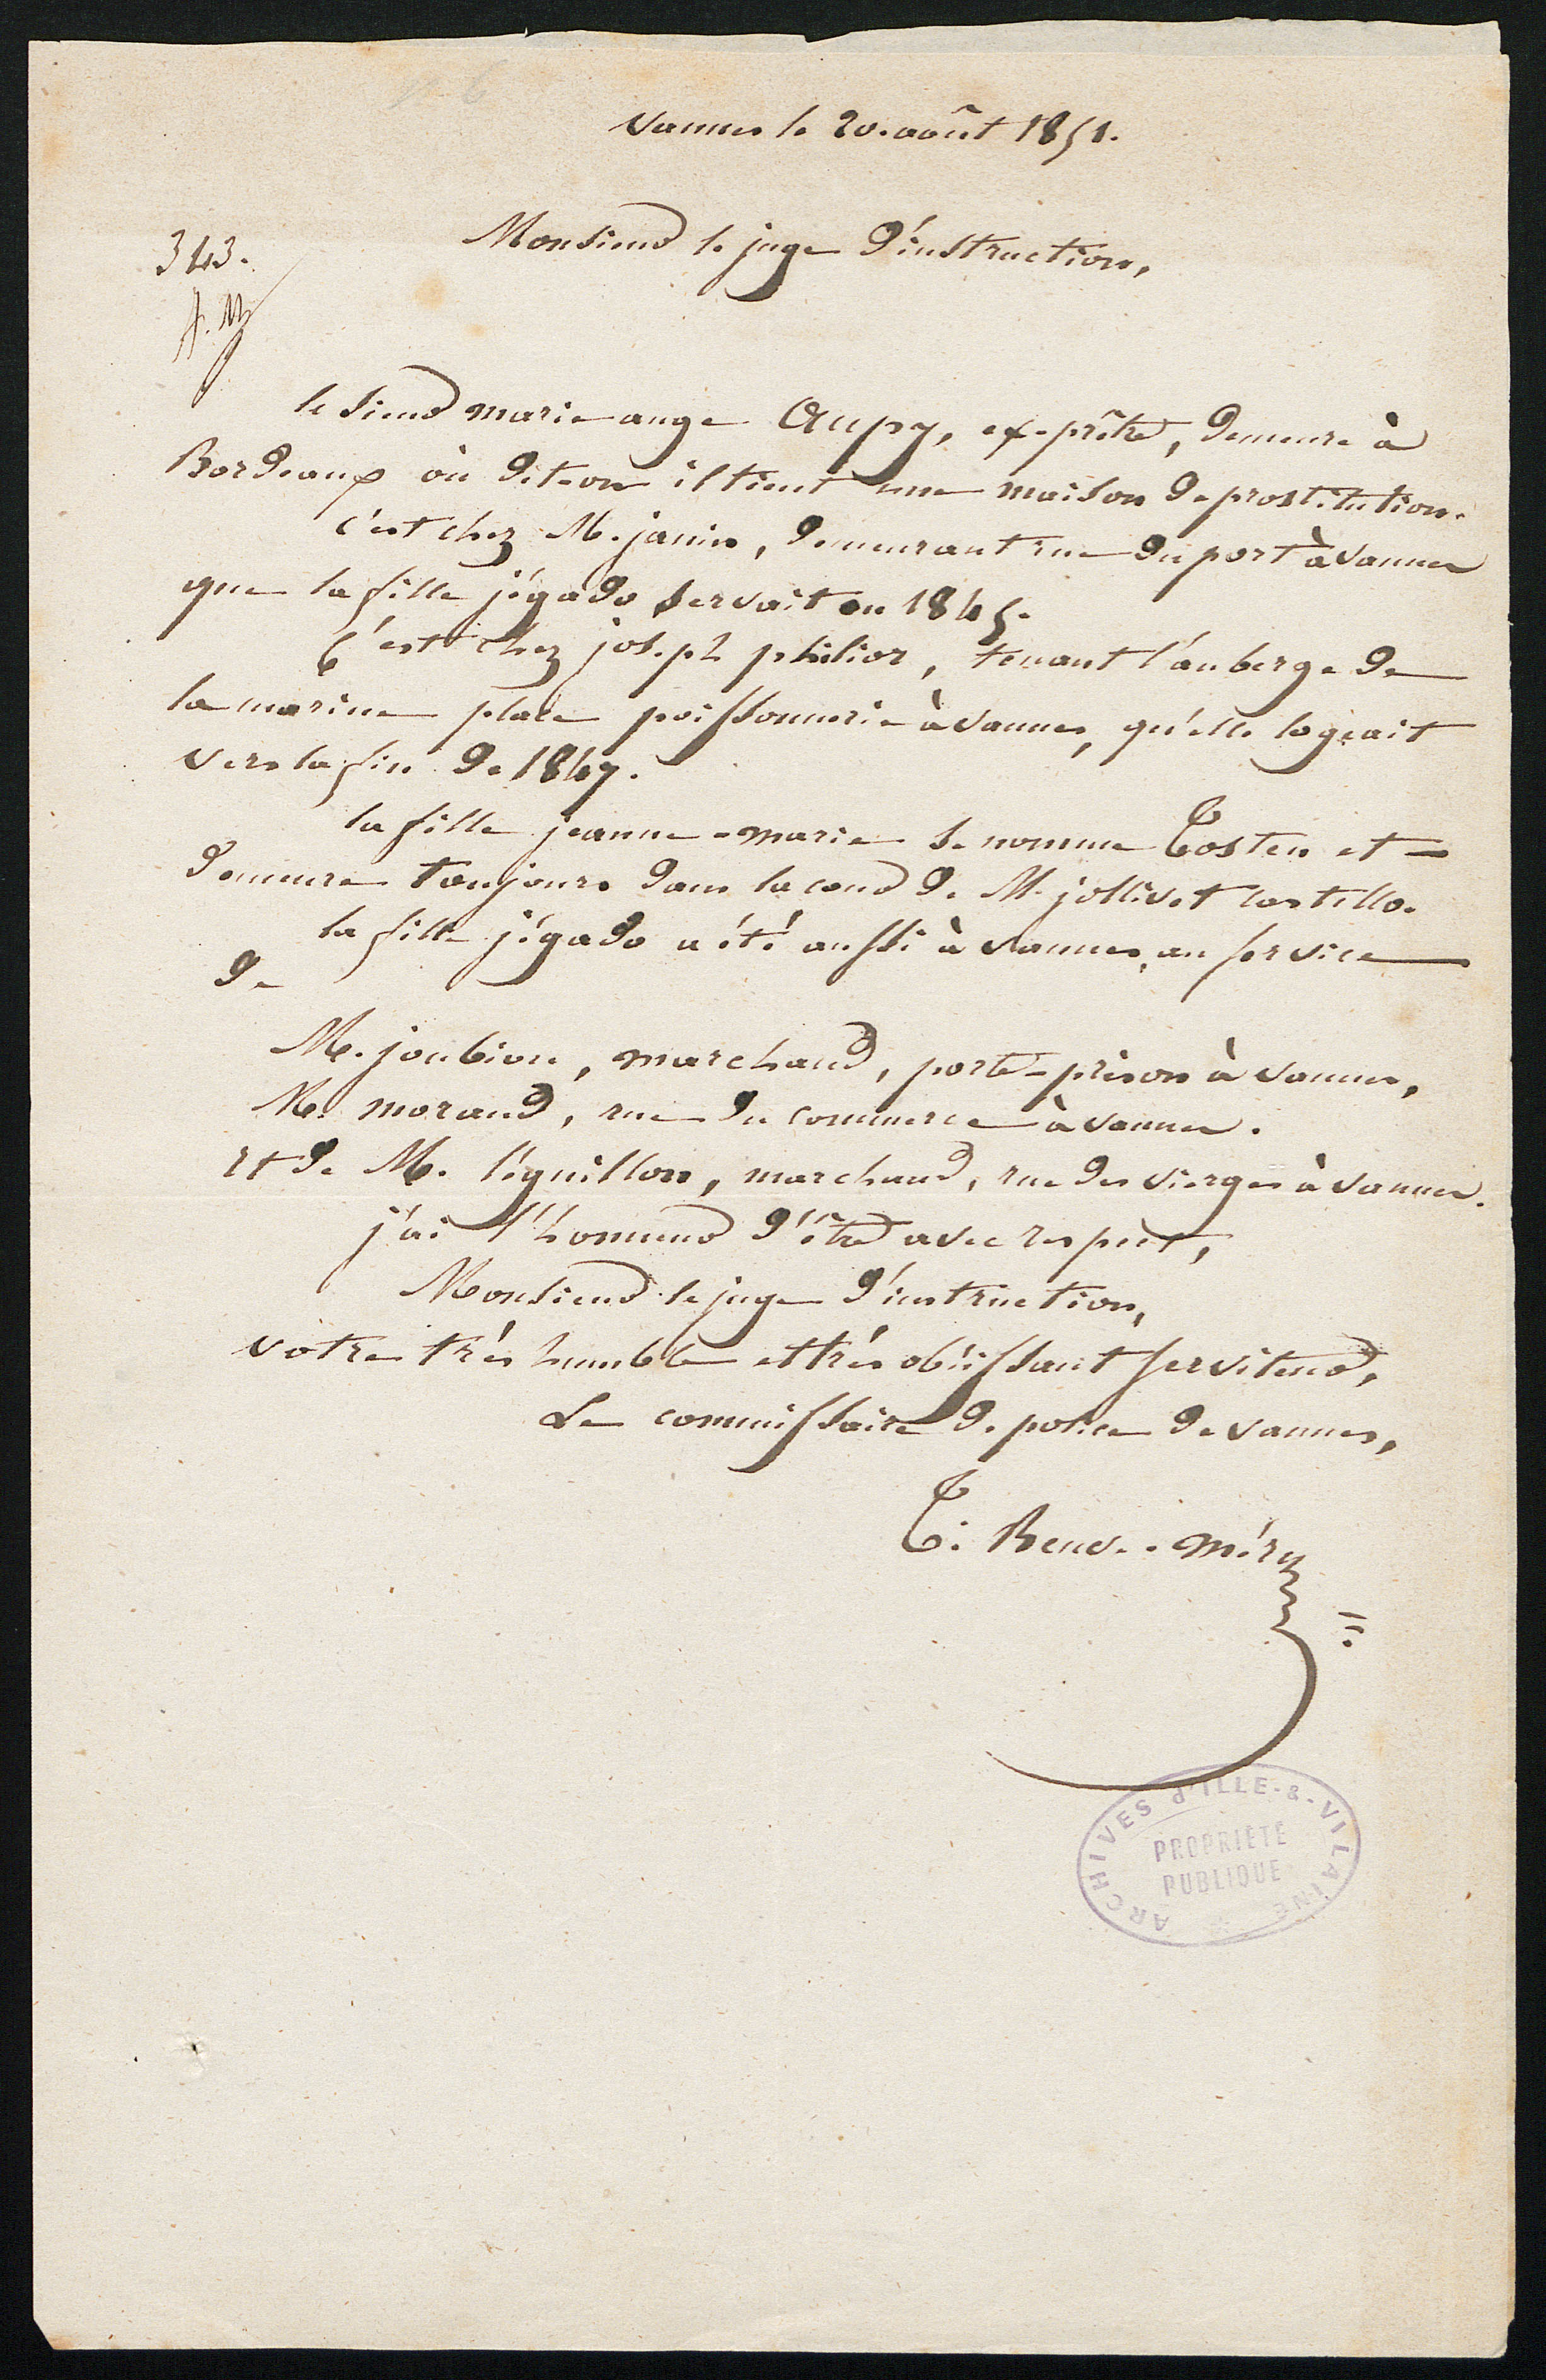 Vannes le 20. août 1851.
343.
Monsieur le juge d'instruction,
le sieur marie ange Aupy, ex-prêtre, demeure à
Bordeaux où dit-on il tient une maison de prostitution.
c'est chez M. janin, demeurant rue du port à Vannes
que la fille jégado servait en 1845.
C'est chez joseph philior, tenant l'auberge de
la marine place poissonnerie à vannes, qu'elle logeait
vers la fin de 1847.
la fille jeanne-marie se nomme Costen et
demeure toujours dans la cour de M. jollivet castello.
la fille jégado a été aussi à vannes, au service
de
M. joubiou, marchand, porte-prison à vannes,
M. morand, rue du commerce à vannes.
et de M. léguillon, marchand, rue des vierges à vannes.
j'ai l'honneur d'être avec respect,
Monsieur le juge d'instruction,
votre très humble et très obéissant serviteur,
Le commissaire de police de vannes,
ARCHIVES d'ILLE-&-VILAINE
PROPRIÉTÉ
PUBLIQUE